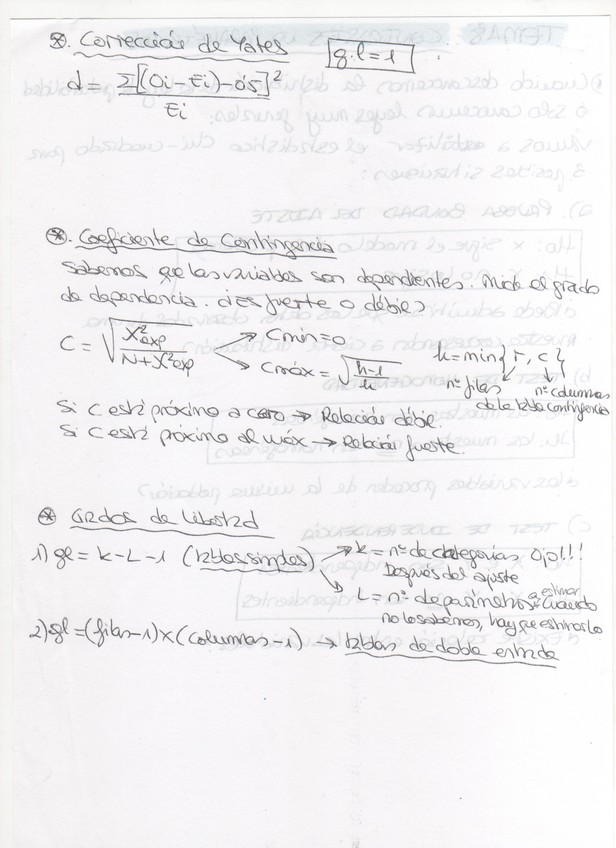 ⊛. Corrección de Yates
g.l = 1
d = Σ[(Oi - Ei) - 0'5]²
Ei
⊛. Coeficiente de Contingencia
Sabemos que las variables son dependientes. Mide el grado
de dependencia. ¿Es fuerte o débil?
C = √ X²exp / N + X²exp → Cmín = 0
→ Cmáx = √ k-1 / k
k = min { F, C }
nº filas
nº columnas
de la tabla contingencia
Si C está próximo a cero → Relación débil.
Si C está próximo al máx → Relación fuerte.
⊛ Grados de libertad
1) gl = k - L - 1 (tablas simples) → k = nº de categorías Ojo!!!
Después del ajuste
→ L = nº de parámetros a estimar Cuando
no lo sabemos, hay que estimarlo
2) gl = (filas - 1) x (columnas - 1) → tablas de doble entrada